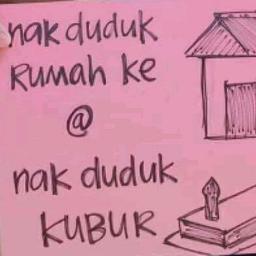 nak duduk
Rumah ke
@
nak duduk
KUBUR